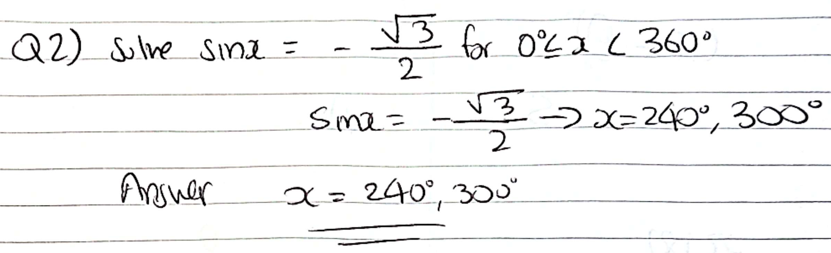 Q2) Solve sinx = -√3/2 for 0°≤x < 360°
Sinx = -√3/2 → x=240°, 300°
Answer x = 240°, 300°